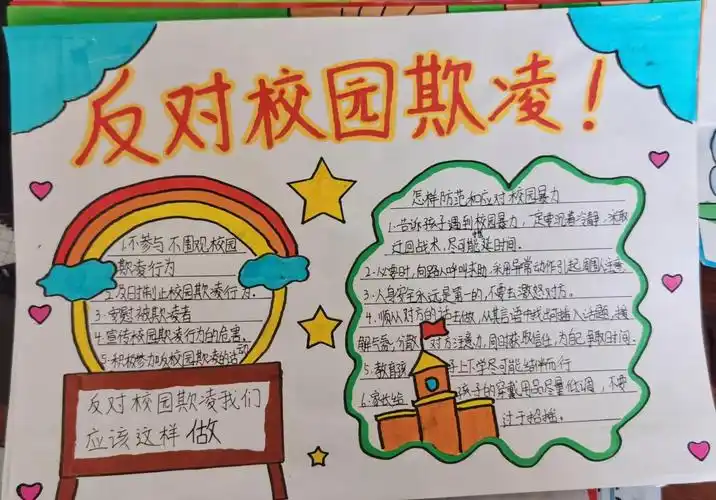 反对校园欺凌！
1.不参与不围观校园
欺凌行为
2.及时制止校园欺凌行为.
3.安慰被欺凌者
4.宣传校园欺凌行为的危害.
5.积极参加反校园欺凌的活动
反对校园欺凌我们
应该这样做
怎样防范和应对校园暴力
1.告诉孩子遇到校园暴力,一定要沉着冷静.采取
迂回战术,尽可能拖延时间.
2.必要时,向路人呼叫求助,采用异常动作引起周围人注意.
3.人身安全永远是第一的,不要去激怒对方.
4.顺从对方的话去做,从其言语中找出可插入话题,缓
解气氛,分散对方注意力,同时获取信任,为自己争取时间.
5.教育孩子上下学尽可能结伴而行
6.家长给孩子的穿戴用品尽量低调,不要
过于招摇。